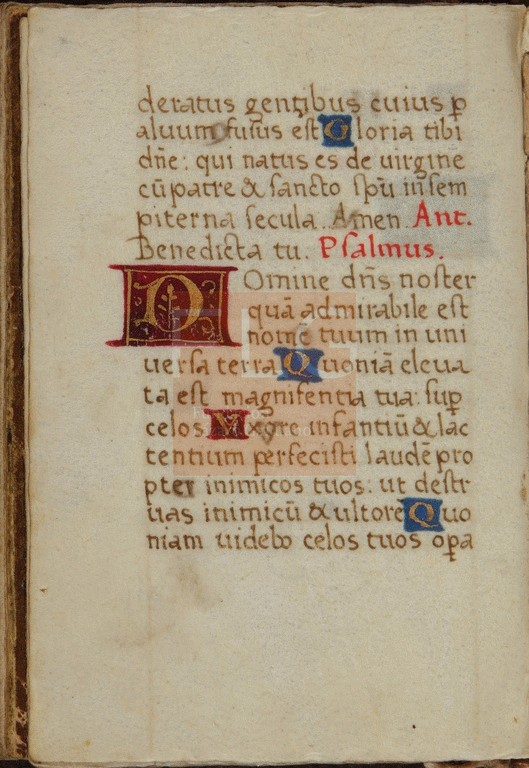 deratus gentibus cuius p̲
aluum fusus est Gloria tibi
dñe: qui natus es de uirgine
cũ patre & sancto spũ in sem
piterna secula. Amen. Ant.
Benedicta tu. Psalmus.
Domine dñs noster
quã admirabile est
nomẽ tuum in uni
uersa terra Quoniã eleua
ta est magnifentia tua: sup̲
celos
infantiũ & lac
tentium p̲fecisti laudẽ pro
pter inimicos tuos: ut destr
uas inimicũ & ultorẽ Quo
niam uidebo celos tuos op̲a